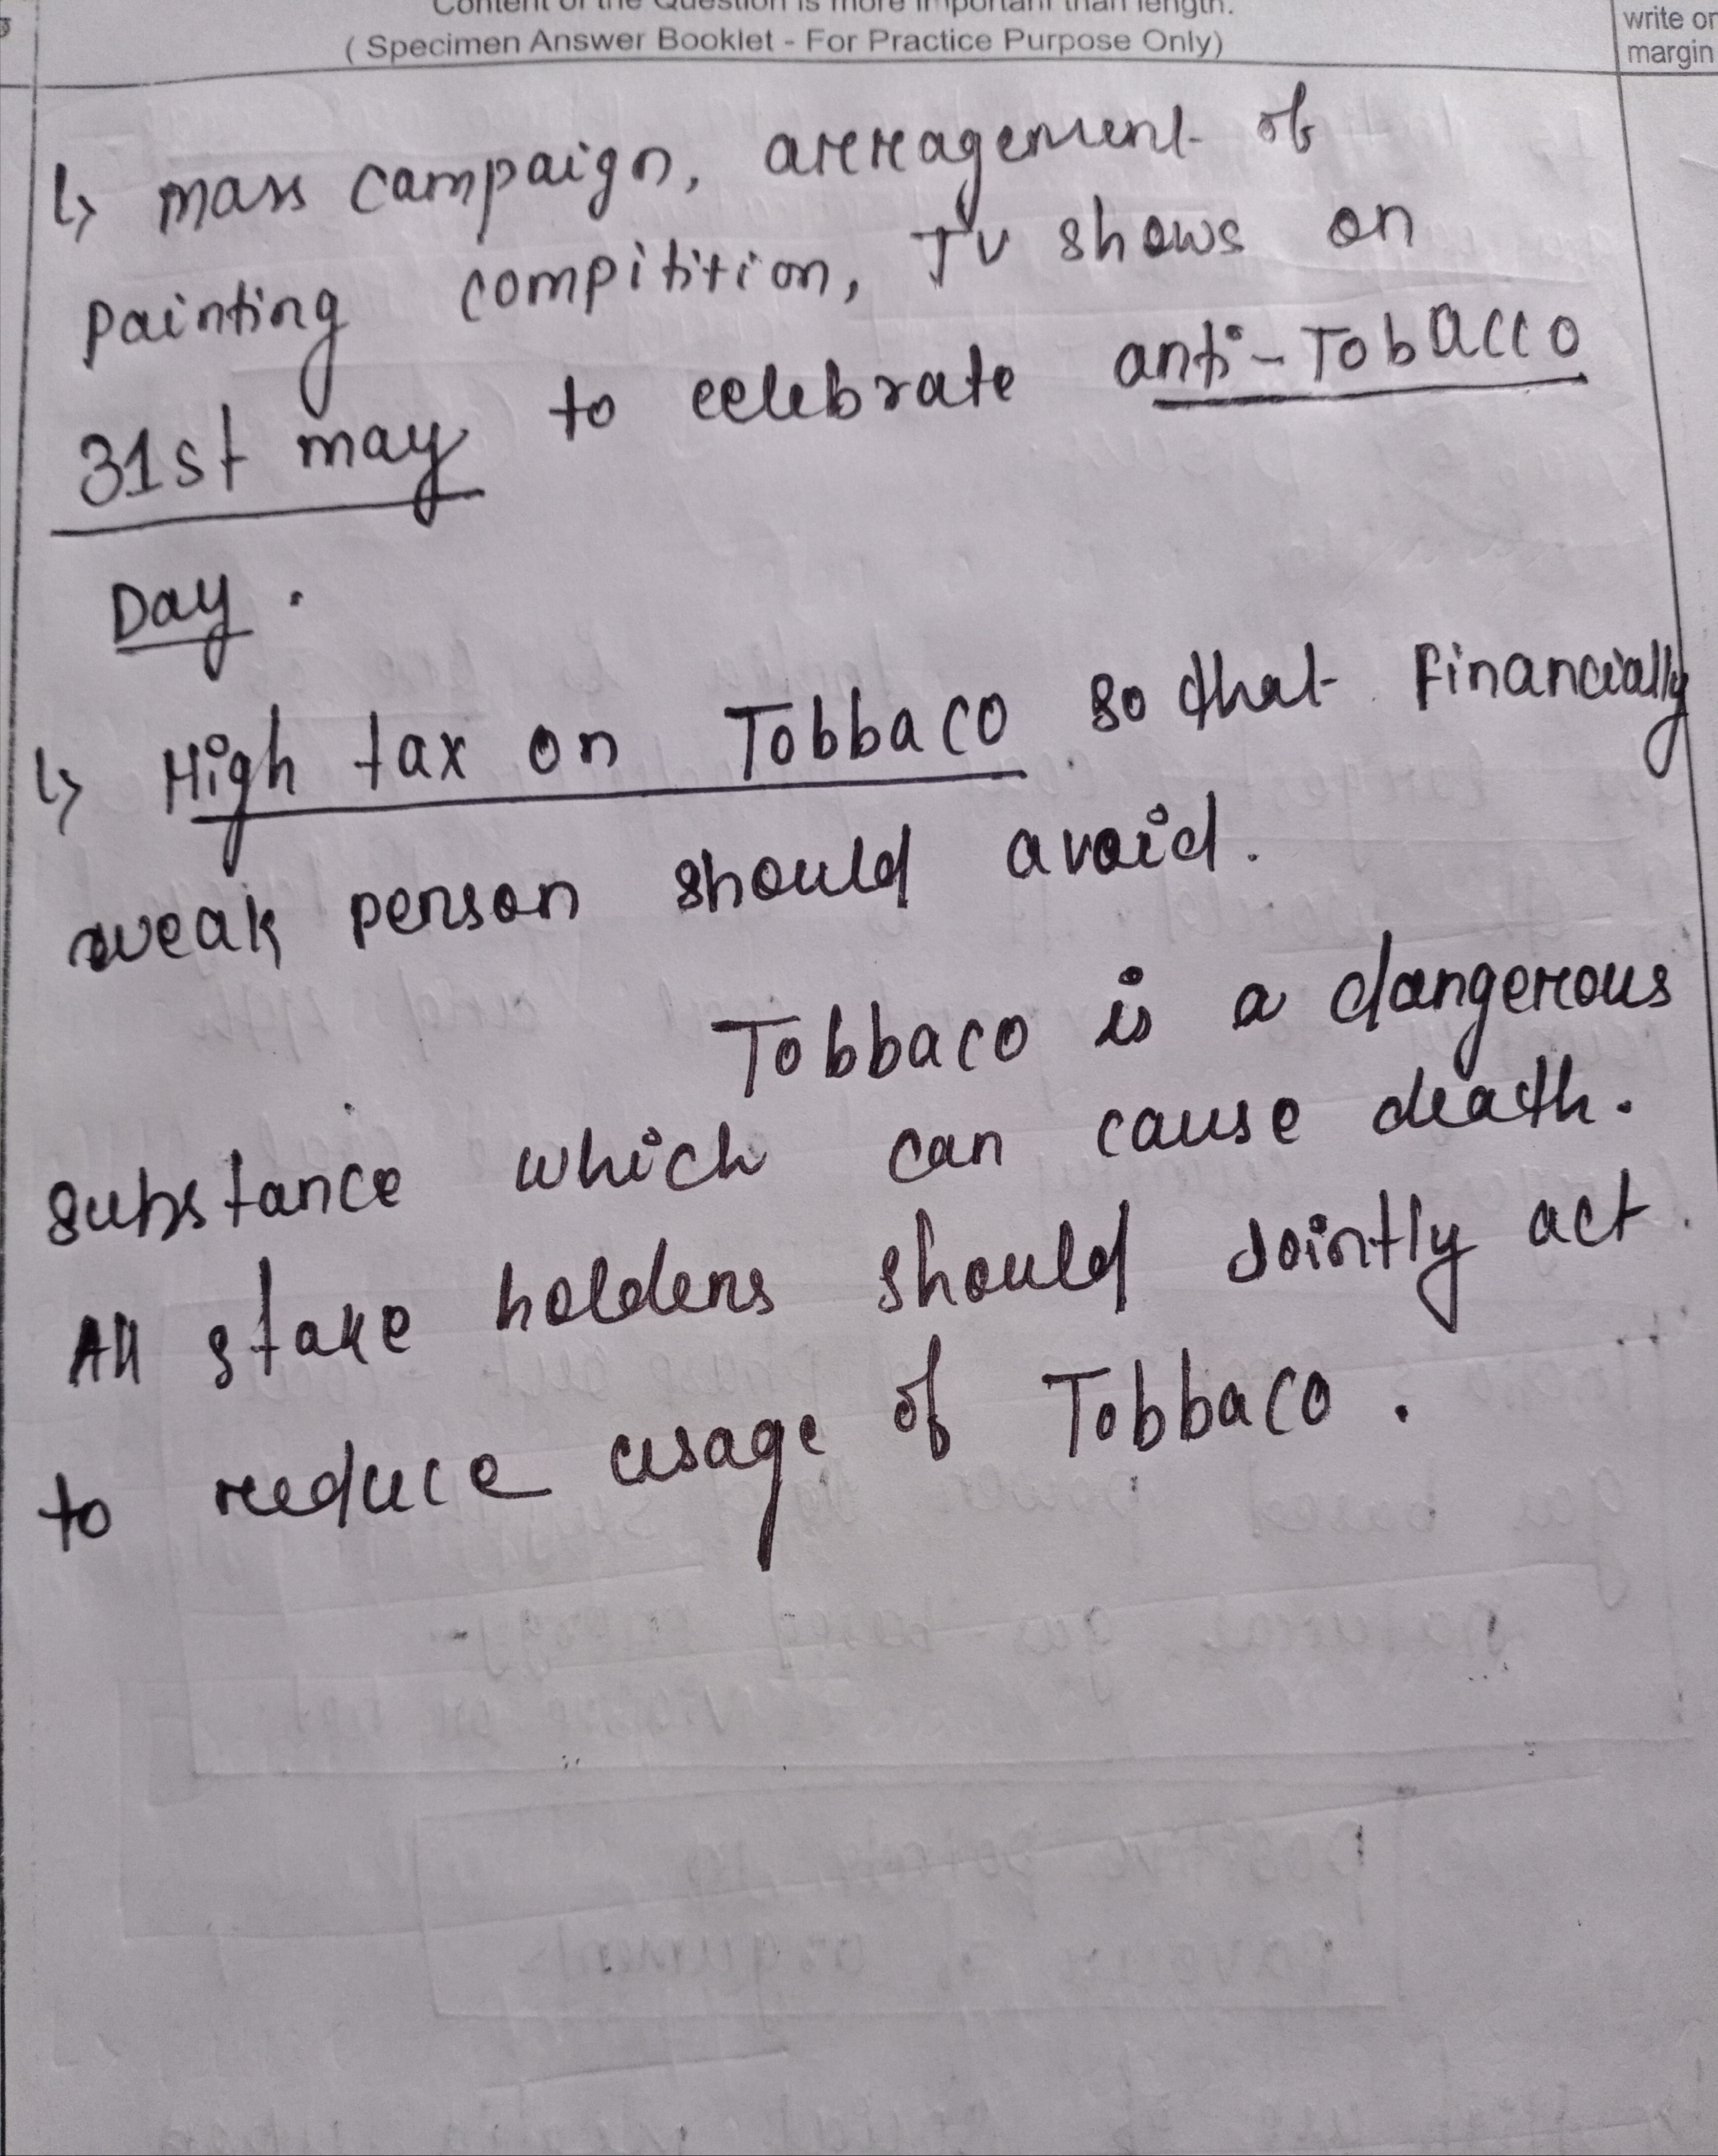 Content of the Question is more important than length.
( Specimen Answer Booklet - For Practice Purpose Only)
write on
margin
↳ mass campaign, arragement of
painting compitition, TV shows on
31st may to celebrate anti-Tobacco
Day.
↳ High tax on Tobbaco so that financially
weak person should avoid.
Tobbaco is a dangerous
substance which can cause death.
All stake holders should Jointly act
to reduce usage of Tobbaco.